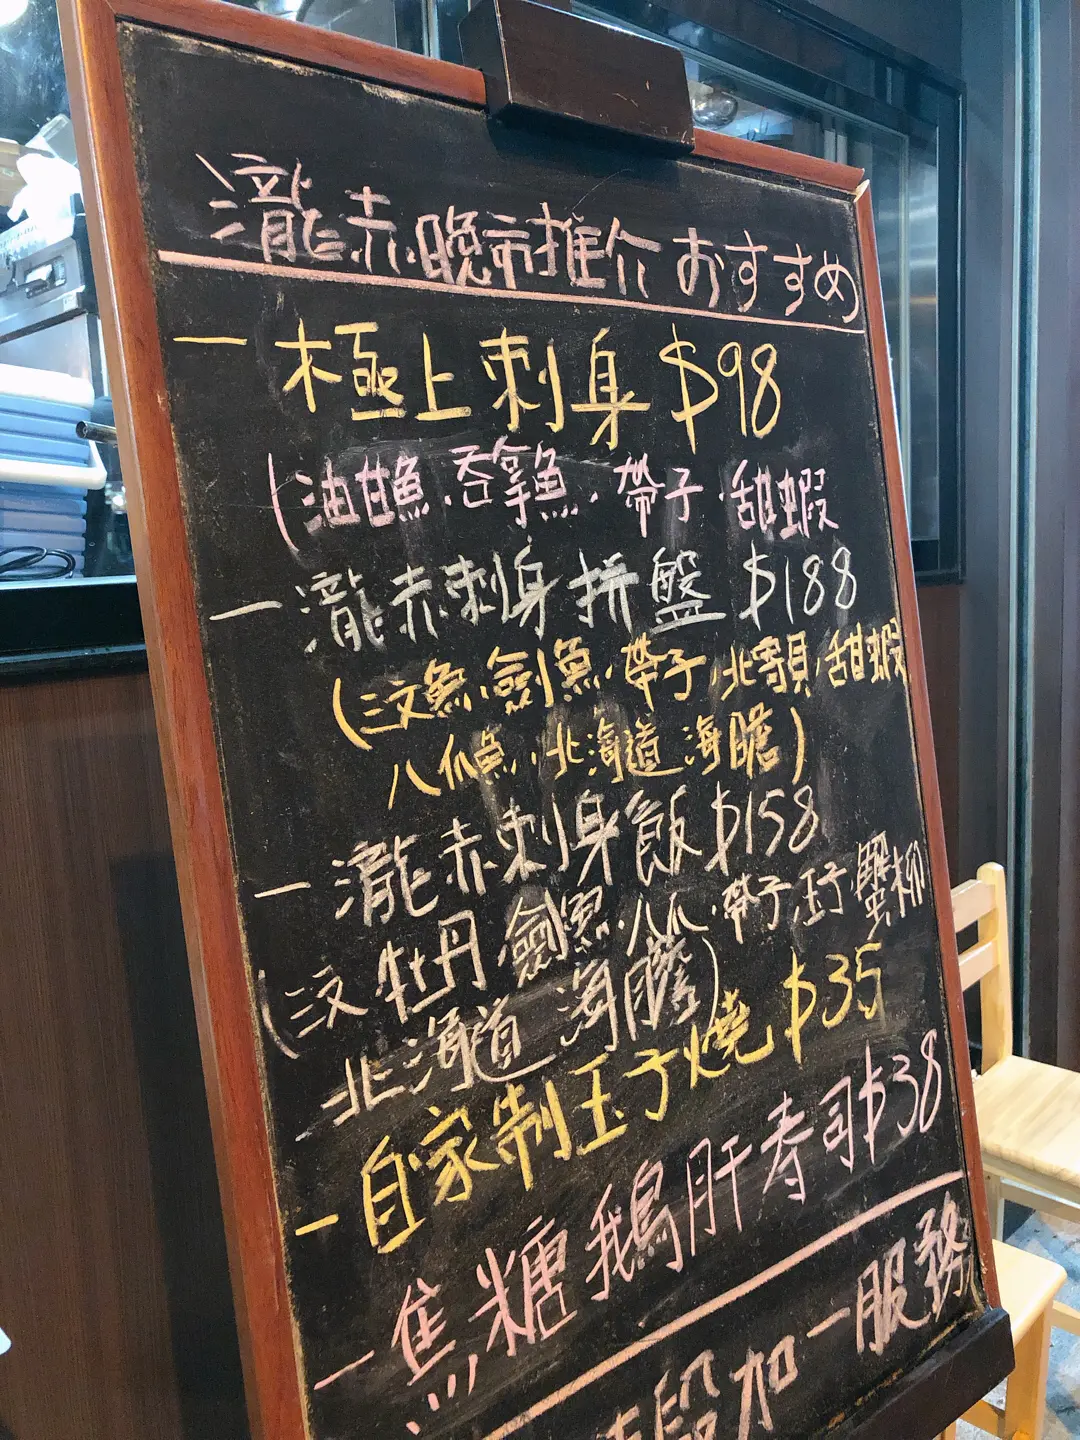 瀧赤晚市推介 おすすめ
一 極上刺身 $98
(油甘魚.吞拿魚.帶子.甜蝦
一 瀧赤刺身拼盤 $188
(三文魚.劍魚.帶子.北寄貝.甜蝦
八爪魚.北海道海膽)
一 瀧赤刺身飯 $158
(三文.牡丹.劍魚.八爪.帶子.玉子.蟹柳
北海道海膽)
一 自家制玉子燒 $35
一 焦糖鵝肝寿司 $38
段加一服務